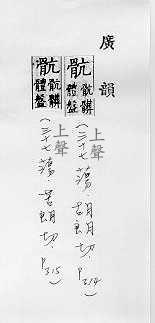 廣韻
骯 骯髒體盤
(三十七蕩.胡朗切.P314)
上聲
骯 骯髒體盤
(三十七蕩.苦朗切.P315)
上聲